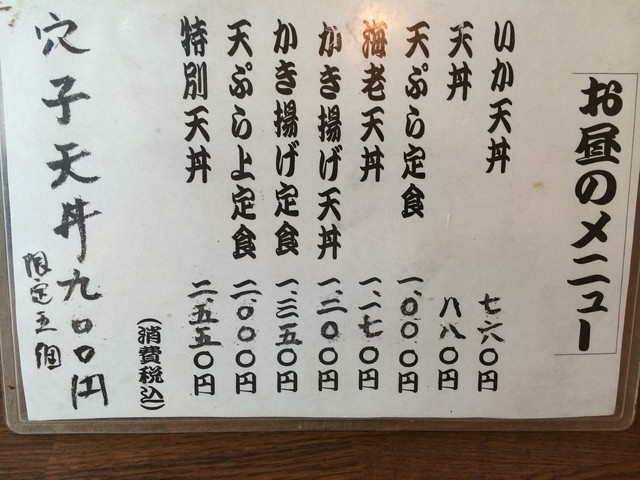 お昼のメニュー
いか天丼 七六〇円
天丼 八八〇円
天ぷら定食 一、〇〇〇円
海老天丼 一、一七〇円
かき揚げ天丼 一、二〇〇円
かき揚げ定食 一、三五〇円
天ぷら上定食 二、〇〇〇円
特別天丼 二、五五〇円
(消費税込)
穴子天丼九〇〇円
限定五個